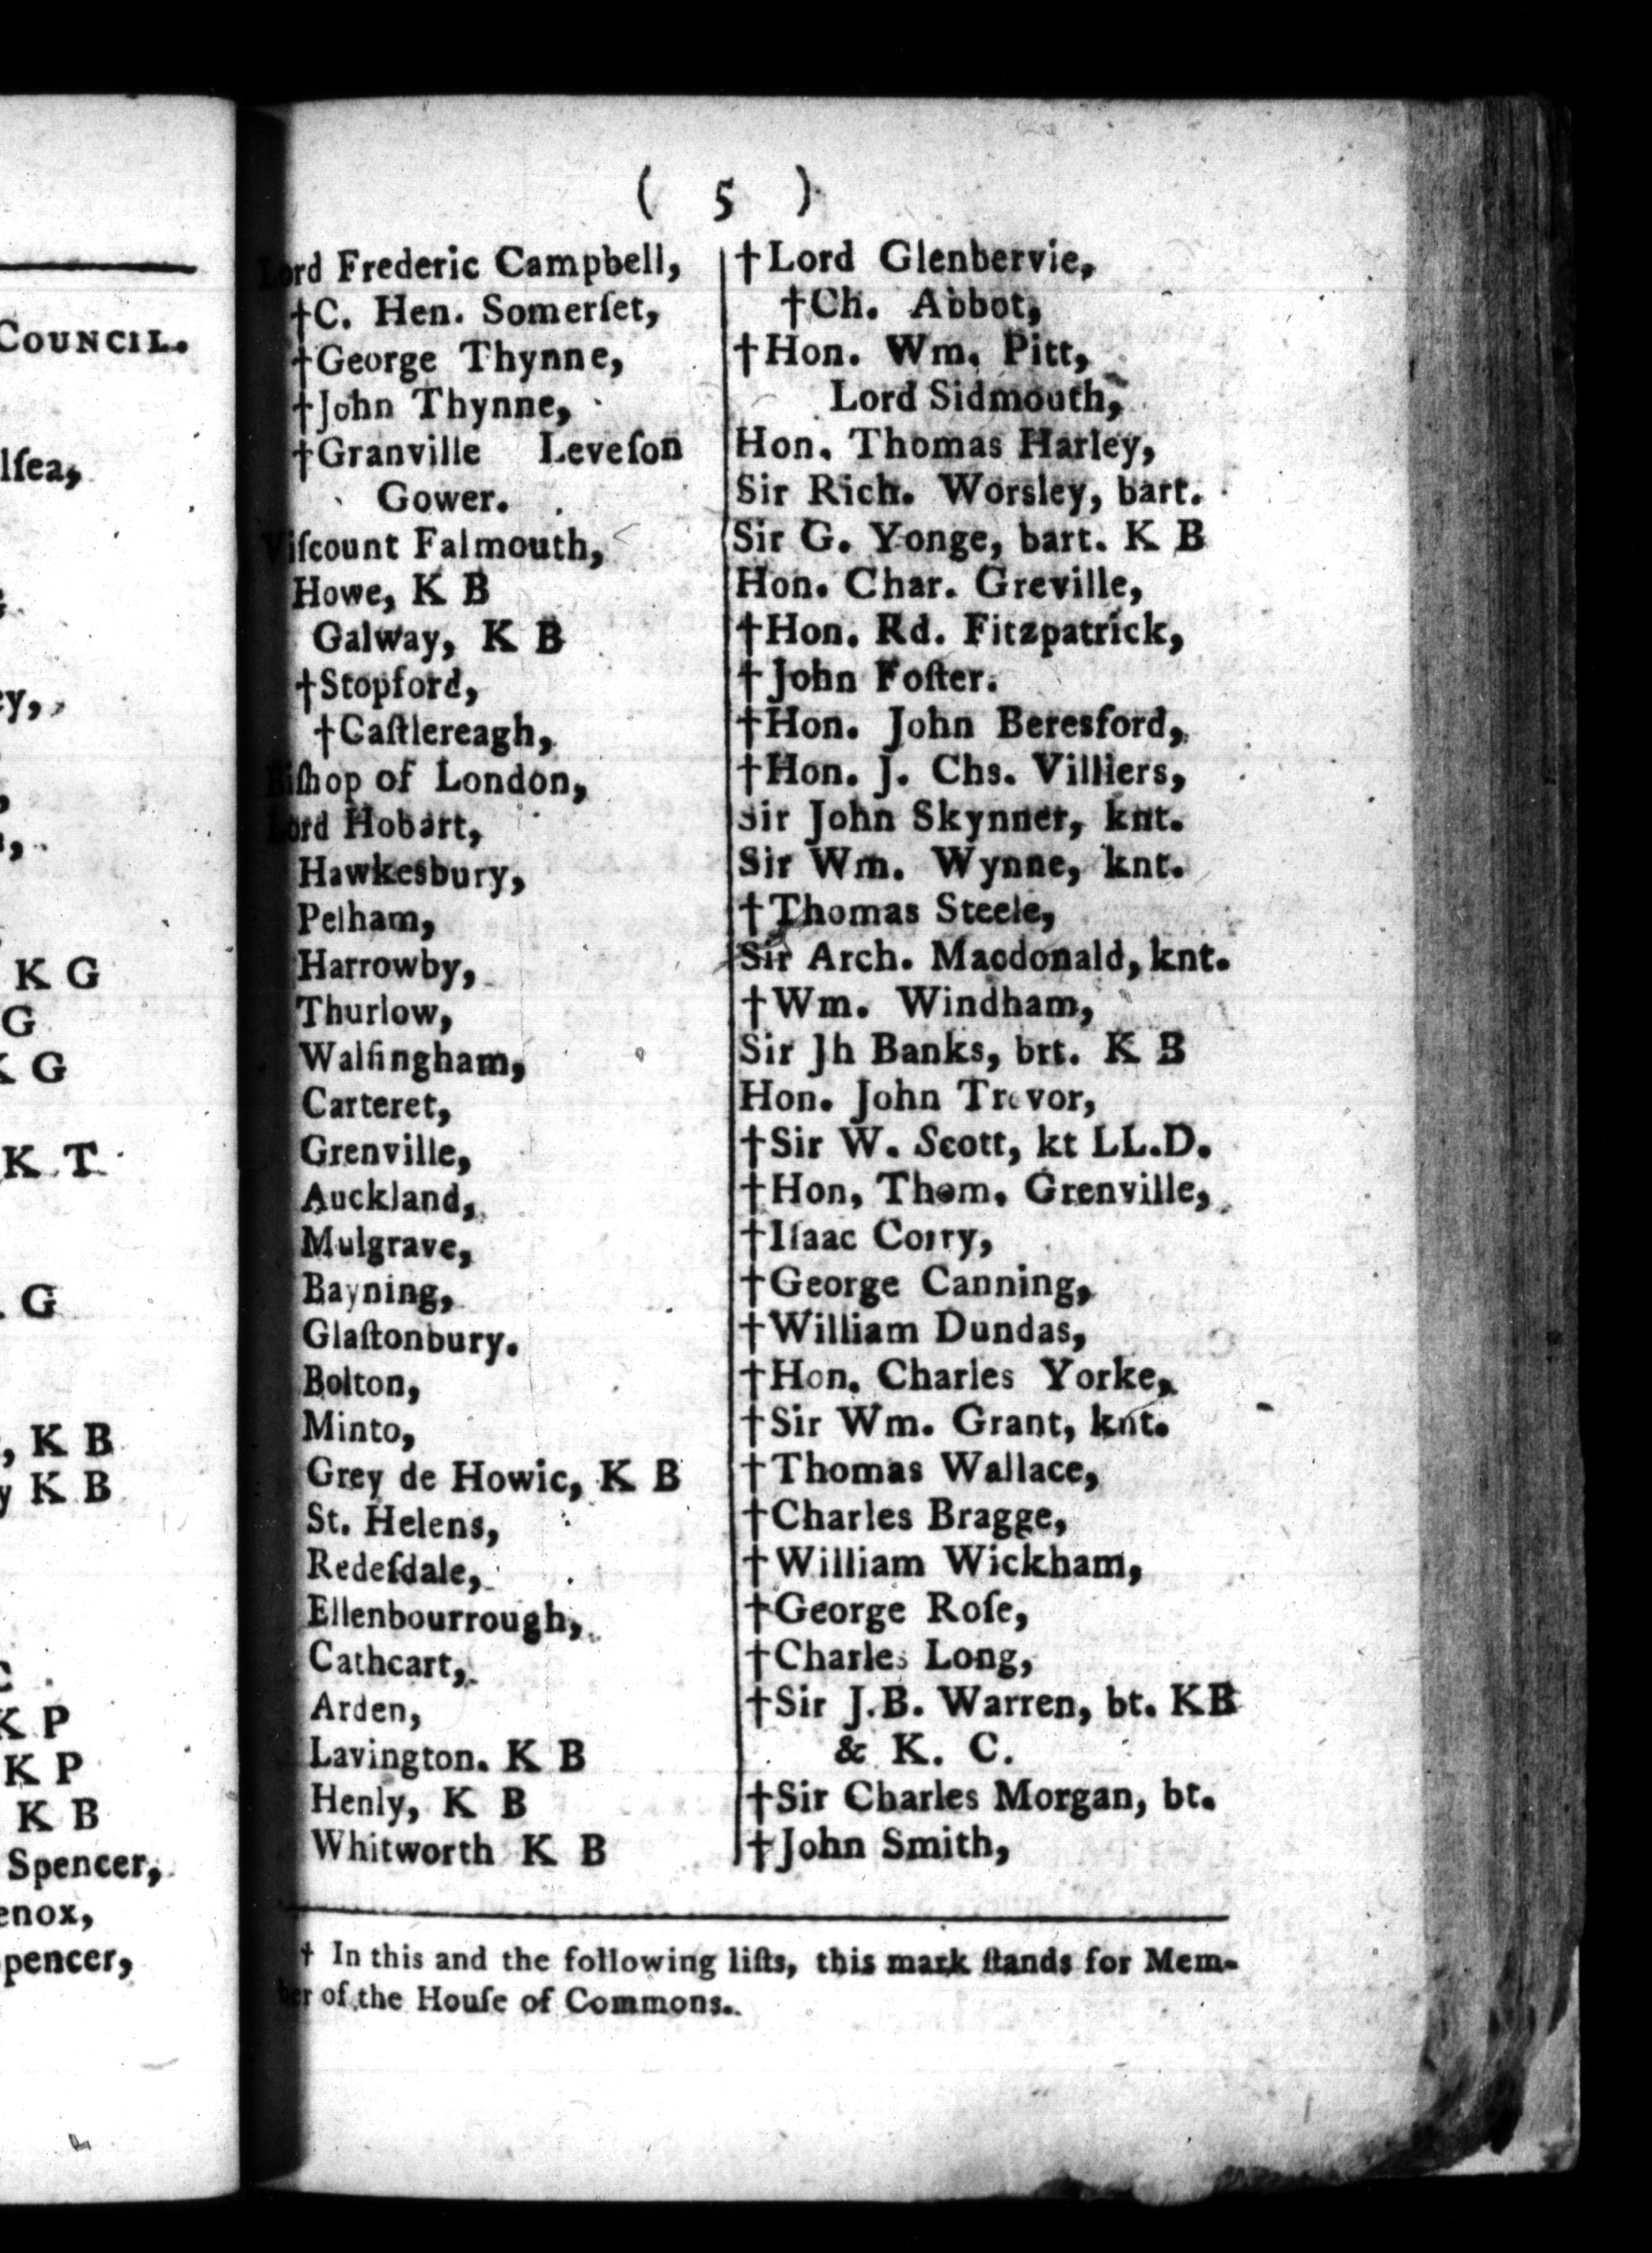 COUNCIL.
lſea,
K G
G
K G
K T
G
, K B
y K B
K P
K P
K B
Spencer,
enox,
pencer,
( 5 )
Lord Frederic Campbell,
†C. Hen. Somerſet,
†George Thynne,
†John Thynne,
†Granville Leveſon
Gower.
Viſcount Falmouth,
Howe, K B
Galway, K B
†Stopford,
†Caſtlereagh,
Biſhop of London,
Lord Hobart,
Hawkesbury,
Pelham,
Harrowby,
Thurlow,
Walſingham,
Carteret,
Grenville,
Auckland,
Mulgrave,
Bayning,
Glaſtonbury.
Bolton,
Minto,
Grey de Howic, K B
St. Helens,
Redeſdale,
Ellenbourrough,
Cathcart,
Arden,
Lavington. K B
Henly, K B
Whitworth K B
†Lord Glenbervie,
†Ch. Abbot,
†Hon. Wm. Pitt,
Lord Sidmouth,
Hon. Thomas Harley,
Sir Rich. Worsley, bart.
Sir G. Yonge, bart. K B
Hon. Char. Greville,
†Hon. Rd. Fitzpatrick,
†John Foſter.
†Hon. John Beresford,
†Hon. J. Chs. Villiers,
Sir John Skynner, knt.
Sir Wm. Wynne, knt.
†Thomas Steele,
Sir Arch. Macdonald, knt.
†Wm. Windham,
Sir Jh Banks, brt. K B
Hon. John Trevor,
†Sir W. Scott, kt LL.D.
†Hon, Thom. Grenville,
†Iſaac Corry,
†George Canning,
†William Dundas,
†Hon. Charles Yorke,
†Sir Wm. Grant, knt.
†Thomas Wallace,
†Charles Bragge,
†William Wickham,
†George Roſe,
†Charles Long,
†Sir J.B. Warren, bt. KB
& K. C.
†Sir Charles Morgan, bt.
†John Smith,
† In this and the following liſts, this mark ſtands for Mem-
ber of the Houſe of Commons.